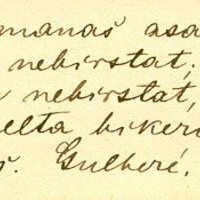 manaš asa
nebirstat;
nebirstat,
elta bikeri
Gulberé.